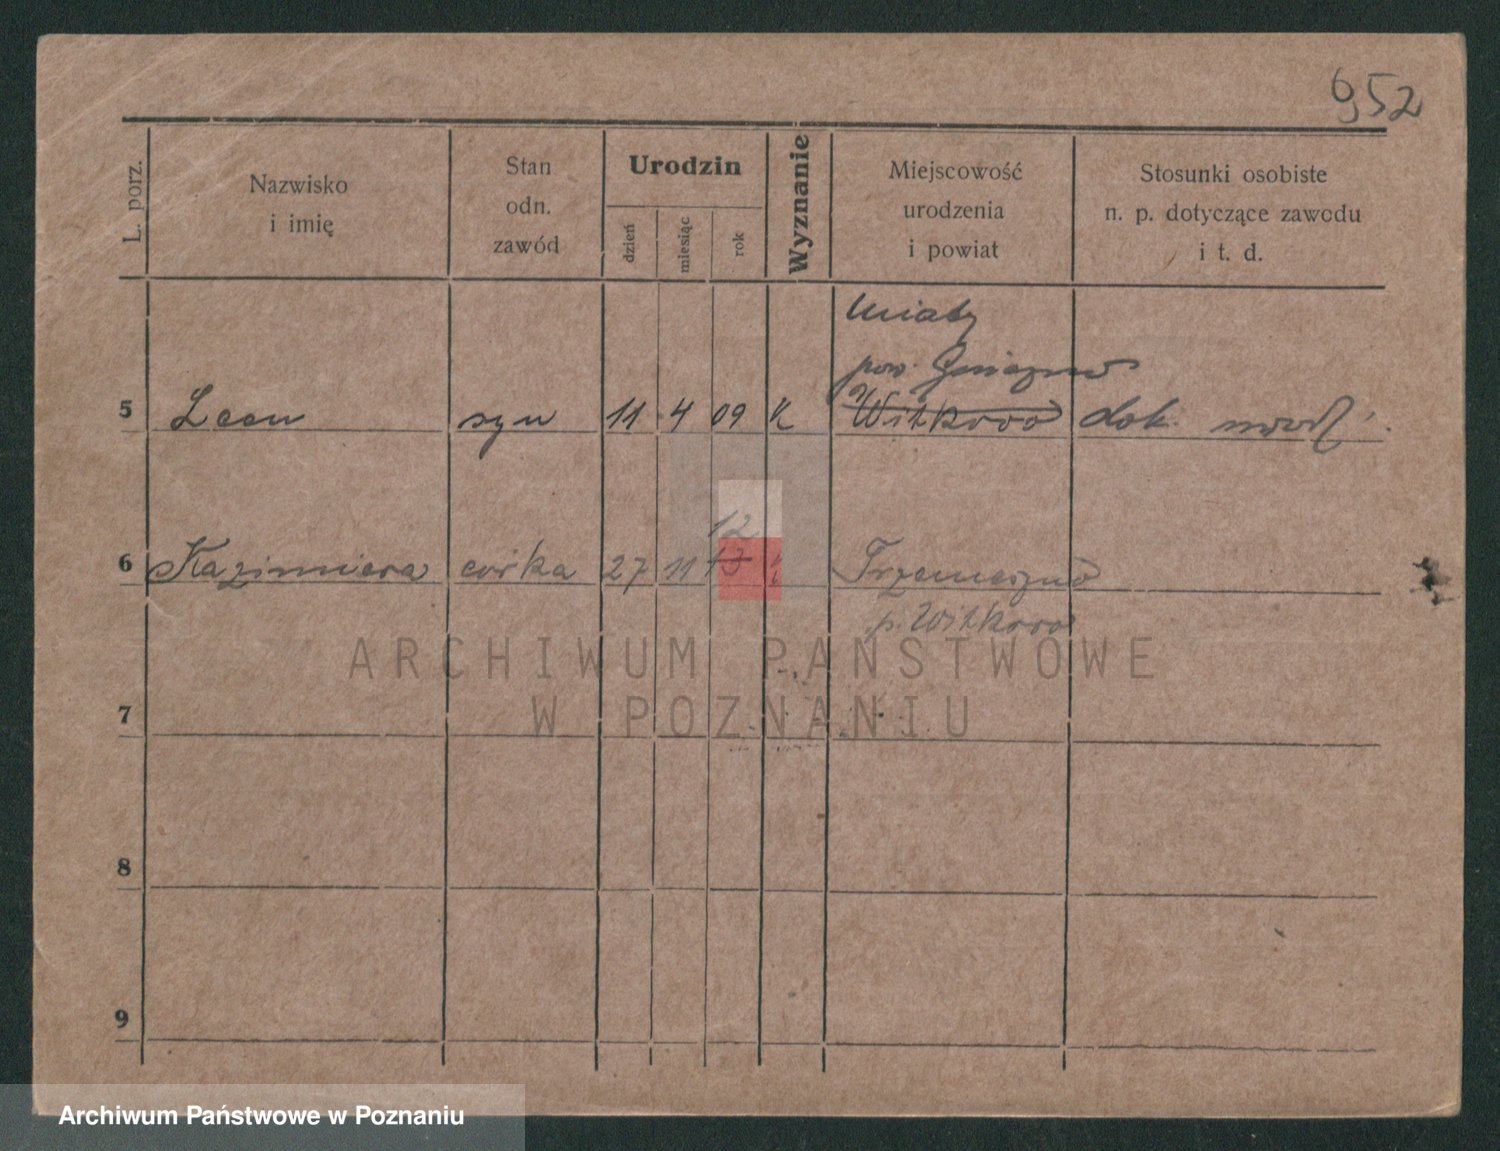 952
L. porz.
Nazwisko
i imię
Stan
odn.
zawód
Urodzin
dzień
miesiąc
rok
Wyznanie
Miejscowość
urodzenia
i powiat
Stosunki osobiste
n. p. dotyczące zawodu
i t. d.
Miaty
pow. Gniezno
5 Leon syn 11 4 09 K Witkowo dok.
12
6 Kazimiera córka 27 11 13 Trzemeszno
p. Witkowo
ARCHIWUM PAŃSTWOWE
W POZNANIU
7
8
9
Archiwum Państwowe w Poznaniu